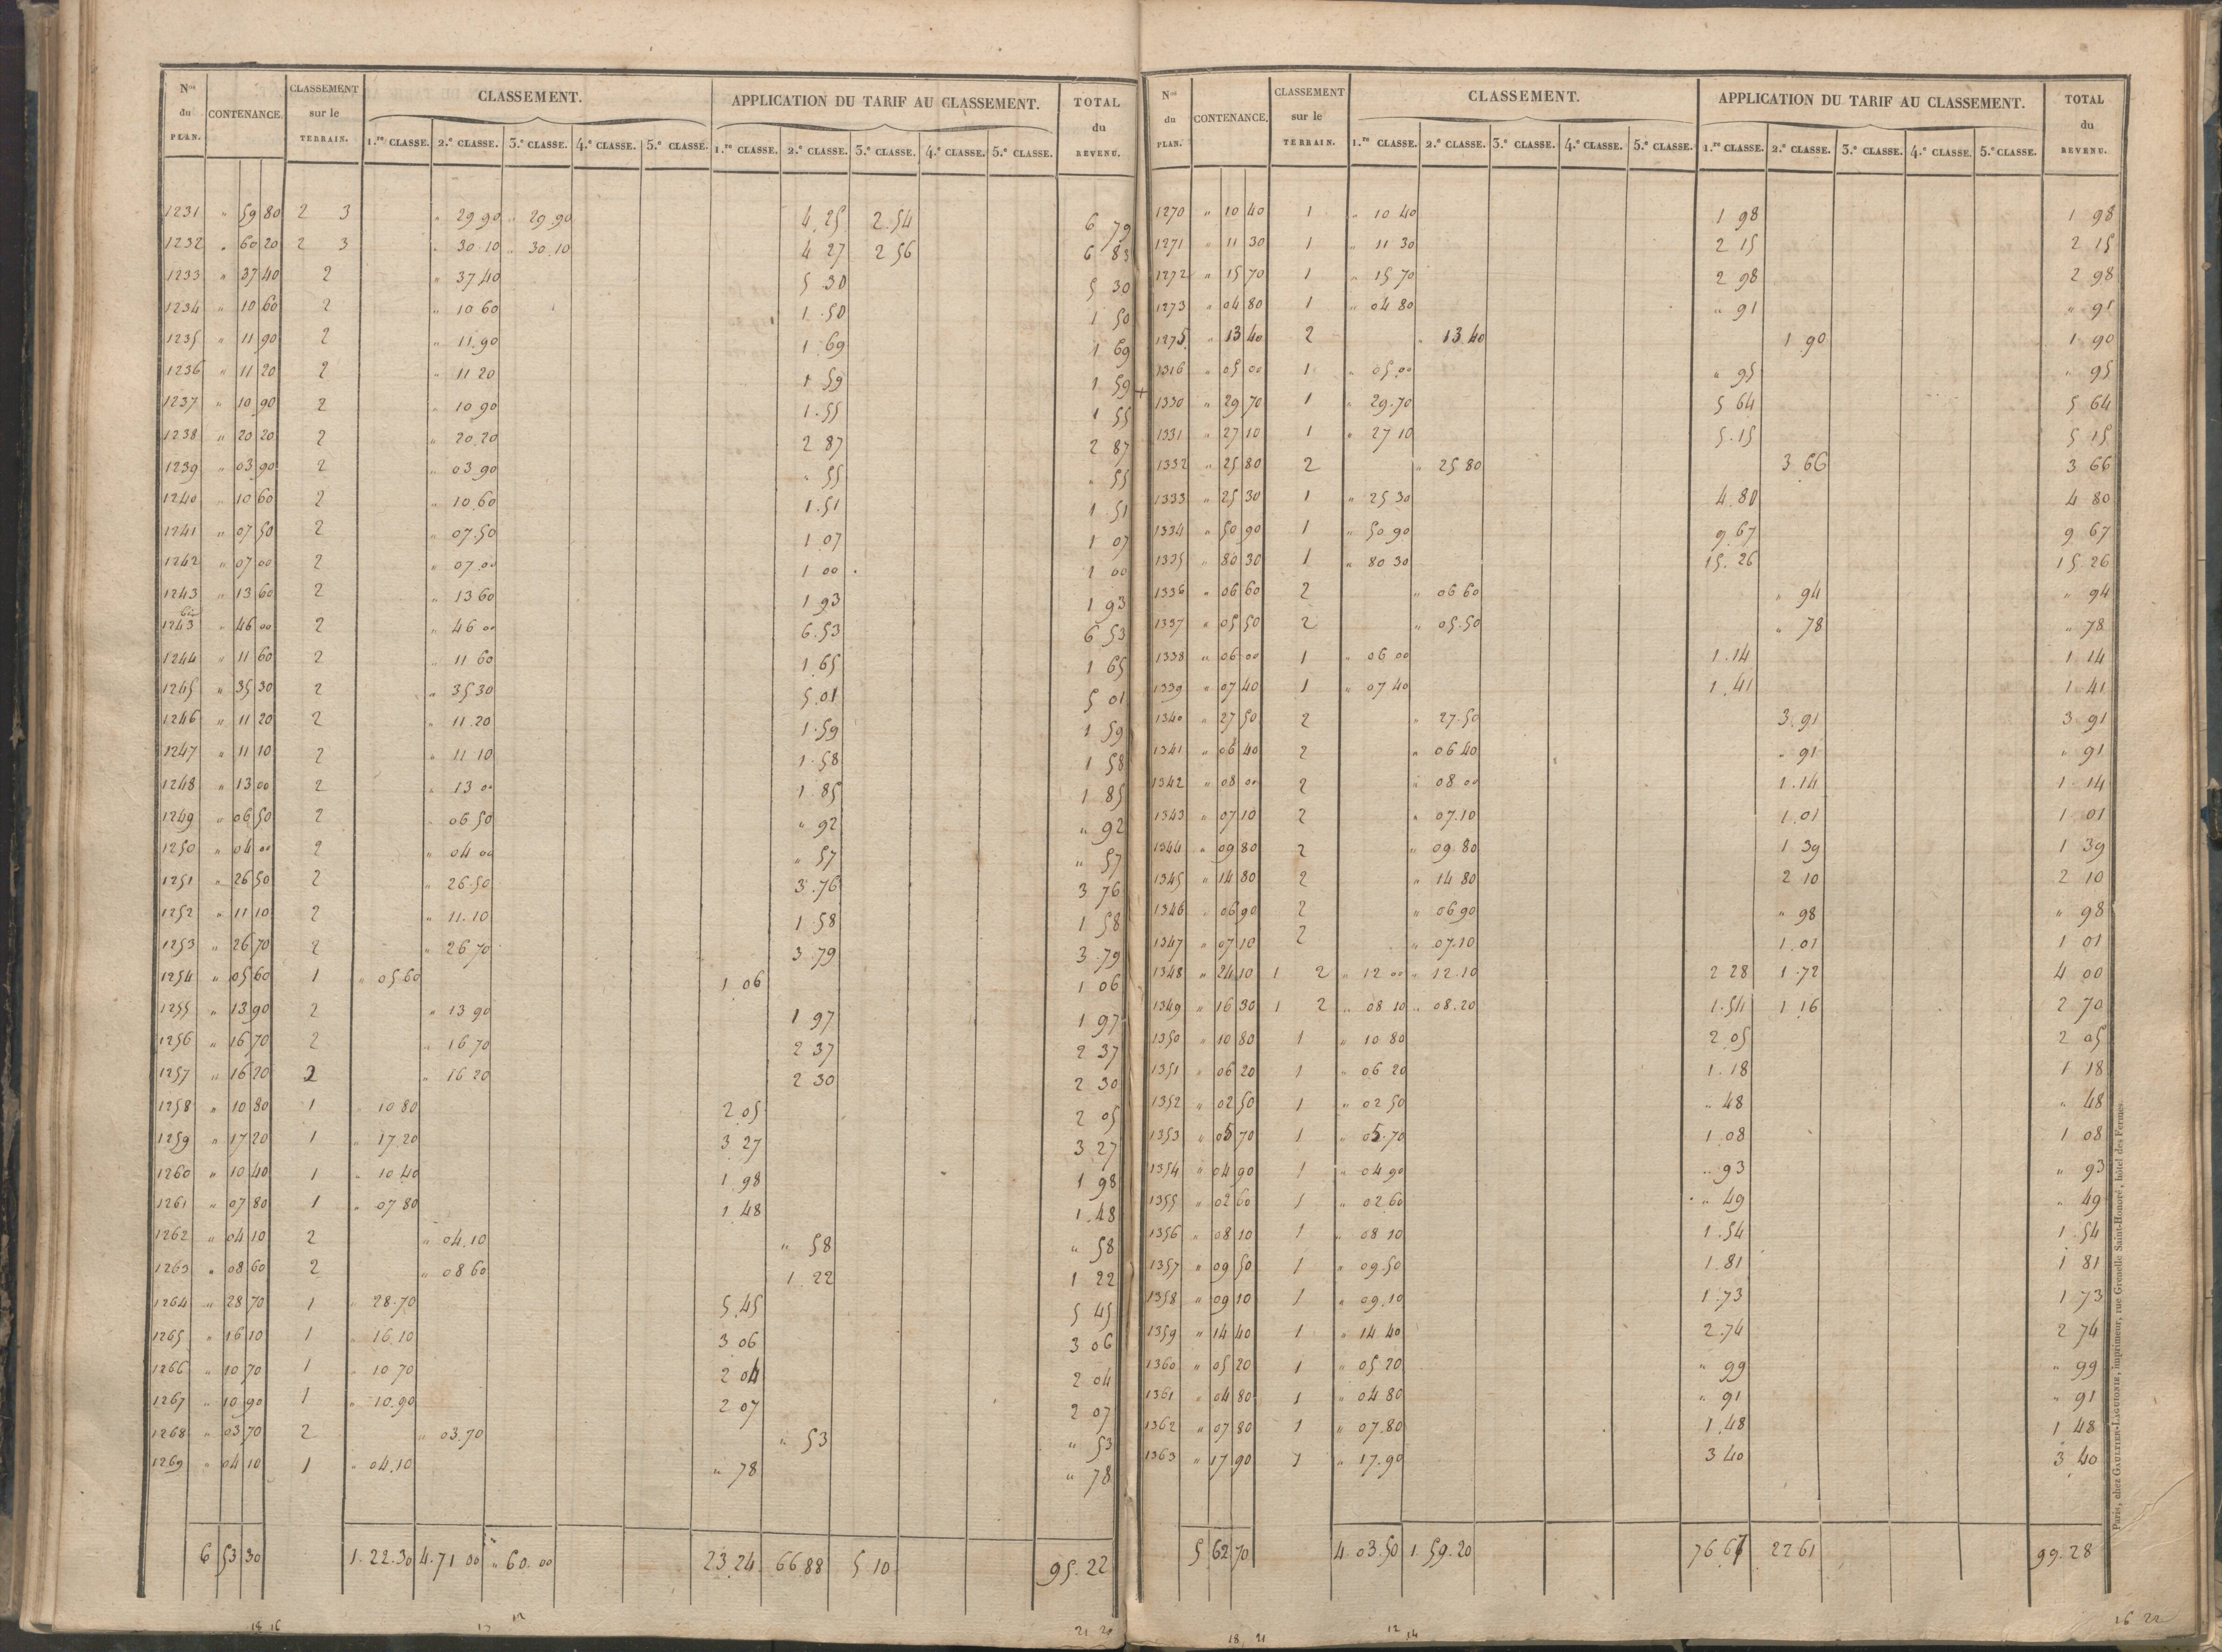 Nos du PLAN. CONTENANCE. CLASSEMENT sur le TERRAIN. CLASSEMENT. APPLICATION DU TARIF AU CLASSEMENT. TOTAL du REVENU.
1.re CLASSE. 2.e CLASSE. 3.e CLASSE. 4.e CLASSE. 5.e CLASSE. 1.re CLASSE. 2.e CLASSE. 3.e CLASSE. 4.e CLASSE. 5.e CLASSE.
1231 " 59 80 2 3 " 29 90 " 29 90 4 25 2 54 6 79
1232 " 60 20 2 3 " 30 10 " 30 10 4 27 2 56 6 83
1233 " 37 40 2 " 37 40 5 30 5 30
1234 " 10 60 2 " 10 60 1 50 1 50
1235 " 11 90 2 " 11 90 1 69 1 69
1236 " 11 20 2 " 11 20 1 59 1 59
1237 " 10 90 2 " 10 90 1 55 1 55
1238 " 20 20 2 " 20 20 2 87 2 87
1239 " 03 90 2 " 03 90 " 55 " 55
1240 " 10 60 2 " 10 60 1 51 1 51
1241 " 07 50 2 " 07 50 1 07 1 07
1242 " 07 00 2 " 07 00 1 00 1 00
1243 " 13 60 2 " 13 60 1 93 1 93
bis
1243 " 46 00 2 " 46 00 6 53 6 53
1244 " 11 60 2 " 11 60 1 65 1 65
1245 " 35 30 2 " 35 30 5 01 5 01
1246 " 11 20 2 " 11 20 1 59 1 59
1247 " 11 10 2 " 11 10 1 58 1 58
1248 " 13 00 2 " 13 00 1 85 1 85
1249 " 06 50 2 " 06 50 " 92 " 92
1250 " 04 00 2 " 04 00 " 57 " 57
1251 " 26 50 2 " 26 50 3 76 3 76
1252 " 11 10 2 " 11 10 1 58 1 58
1253 " 26 70 2 " 26 70 3 79 3 79
1254 " 05 60 1 " 05 60 1 06 1 06
1255 " 13 90 2 " 13 90 1 97 1 97
1256 " 16 70 2 " 16 70 2 37 2 37
1257 " 16 20 2 " 16 20 2 30 2 30
1258 " 10 80 1 " 10 80 2 05 2 05
1259 " 17 20 1 " 17 20 3 27 3 27
1260 " 10 40 1 " 10 40 1 98 1 98
1261 " 07 80 1 " 07 80 1 48 1 48
1262 " 04 10 2 " 04 10 " 58 " 58
1263 " 08 60 2 " 08 60 1 22 1 22
1264 " 28 70 1 " 28 70 5 45 5 45
1265 " 16 10 1 " 16 10 3 06 3 06
1266 " 10 70 1 " 10 70 2 04 2 04
1267 " 10 90 1 " 10 90 2 07 2 07
1268 " 03 70 2 " 03 70 " 53 " 53
1269 " 04 10 1 " 04 10 " 78 " 78
6 53 30 1.22.30 4.71 00 " 60.00 23.24 66 88 5 10 95.22
18 16 12 21 20
Nos du PLAN. CONTENANCE. CLASSEMENT sur le TERRAIN. CLASSEMENT. APPLICATION DU TARIF AU CLASSEMENT. TOTAL du REVENU.
1.re CLASSE. 2.e CLASSE. 3.e CLASSE. 4.e CLASSE. 5.e CLASSE. 1.re CLASSE. 2.e CLASSE. 3.e CLASSE. 4.e CLASSE. 5.e CLASSE.
1270 " 10 40 1 " 10 40 1 98 1 98
1271 " 11 30 1 " 11 30 2 15 2 15
1272 " 15 70 1 " 15 70 2 98 2 98
1273 " 04 80 1 " 04 80 " 91 " 91
1275 " 13 40 2 " 13 40 1 90 1 90
1316 " 05 00 1 " 05 00 " 95 " 95
+ 1330 " 29 70 1 " 29.70 5 64 5 64
1331 " 27 10 1 " 27 10 5.15 5 15
1332 " 25 80 2 " 25 80 3 66 3 66
1333 " 25 30 1 " 25 30 4.80 4 80
1334 " 50 90 1 " 50 90 9.67 9 67
1335 " 80 30 1 " 80 30 15.26 15 26
1336 " 06 60 2 " 06 60 " 94 " 94
1337 " 05 50 2 " 05.50 " 78 " 78
1338 " 06 00 1 " 06 00 1.14 1 14
1339 " 07 40 1 " 07 40 1.41 1 41
1340 " 27 50 2 " 27.50 3.91 3 91
1341 " 06 40 2 " 06 40 " 91 " 91
1342 " 08 00 2 " 08 00 1.14 1 14
1343 " 07 10 2 " 07.10 1.01 1 01
1344 " 09 80 2 " 09 80 1 39 1 39
1345 " 14 80 2 " 14 80 2 10 2 10
1346 " 06 90 2 " 06 90 " 98 " 98
1347 " 07 10 2 " 07.10 1.01 1 01
1348 " 24 10 1 2 " 12 00 " 12.10 2 28 1.72 4 00
1349 " 16 30 1 2 " 08 10 " 08.20 1.54 1 16 2 70
1350 " 10 80 1 " 10 80 2 05 2 05
1351 " 06 20 1 " 06 20 1.18 1 18
1352 " 02 50 1 " 02 50 " 48 " 48
1353 " 05 70 1 " 05.70 1.08 1 08
1354 " 04 90 1 " 04 90 " 93 " 93
1355 " 02 60 1 " 02 60 " 49 " 49
1356 " 08 10 1 " 08 10 1.54 1.54
1357 " 09 50 1 " 09.50 1.81 1 81
1358 " 09 10 1 " 09.10 1.73 1 73
1359 " 14 40 1 " 14 40 2.74 2 74
1360 " 05 20 1 " 05 20 " 99 " 99
1361 " 04 80 1 " 04 80 " 91 " 91
1362 " 07 80 1 " 07.80 1.48 1 48
1363 " 17 90 1 " 17.90 3 40 3 40
5 62 70 4.03.50 1.59.20 76.67 22 61 99.28
18 21 12 14 16 22
Paris, chez GAULTIER-LAGUIONIE, imprimeur, rue Grenelle Saint-Honoré, hôtel des Fermes.